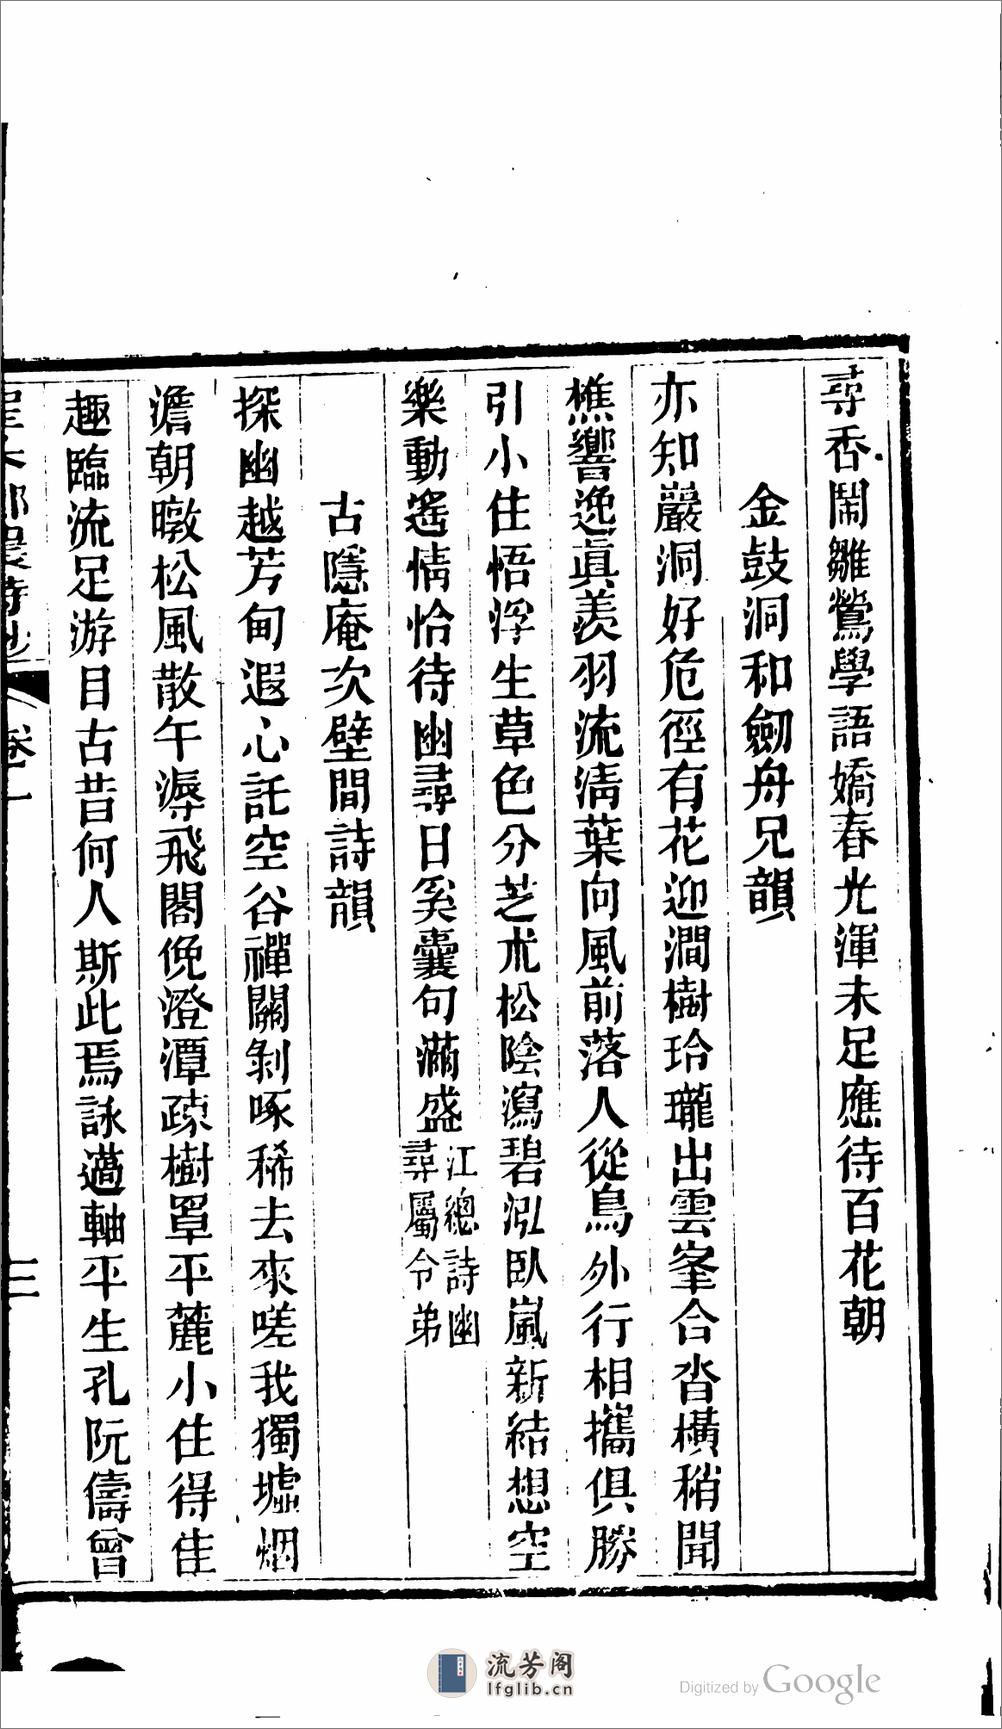 尋香鬧雛鶯學語嬌春光渾未足應待百花朝
金鼓洞和劒舟兄韻
亦知巖洞好危徑有花迎澗樹玲瓏出雲峯合沓橫稍聞
樵響逸眞羨羽流淸葉向風前落人從鳥外行相攜俱勝
引小住悟浮生草色分芝朮松陰瀉碧泓臥嵐新結想空
樂動遙情恰待幽尋日奚囊句滿盛
江總詩幽
尋屬令弟
古隱庵次壁間詩韻
探幽越芳甸遐心託空谷禪關剝啄稀去來嗟我獨墟烟
澹朝暾松風散午溽飛閣俛澄潭疏樹罩平麓小住得佳
趣臨流足游目古昔何人斯此焉詠薖軸平生孔阮儔曾
卷一
三
流芳阁
lfglib.cn
Digitized by Google